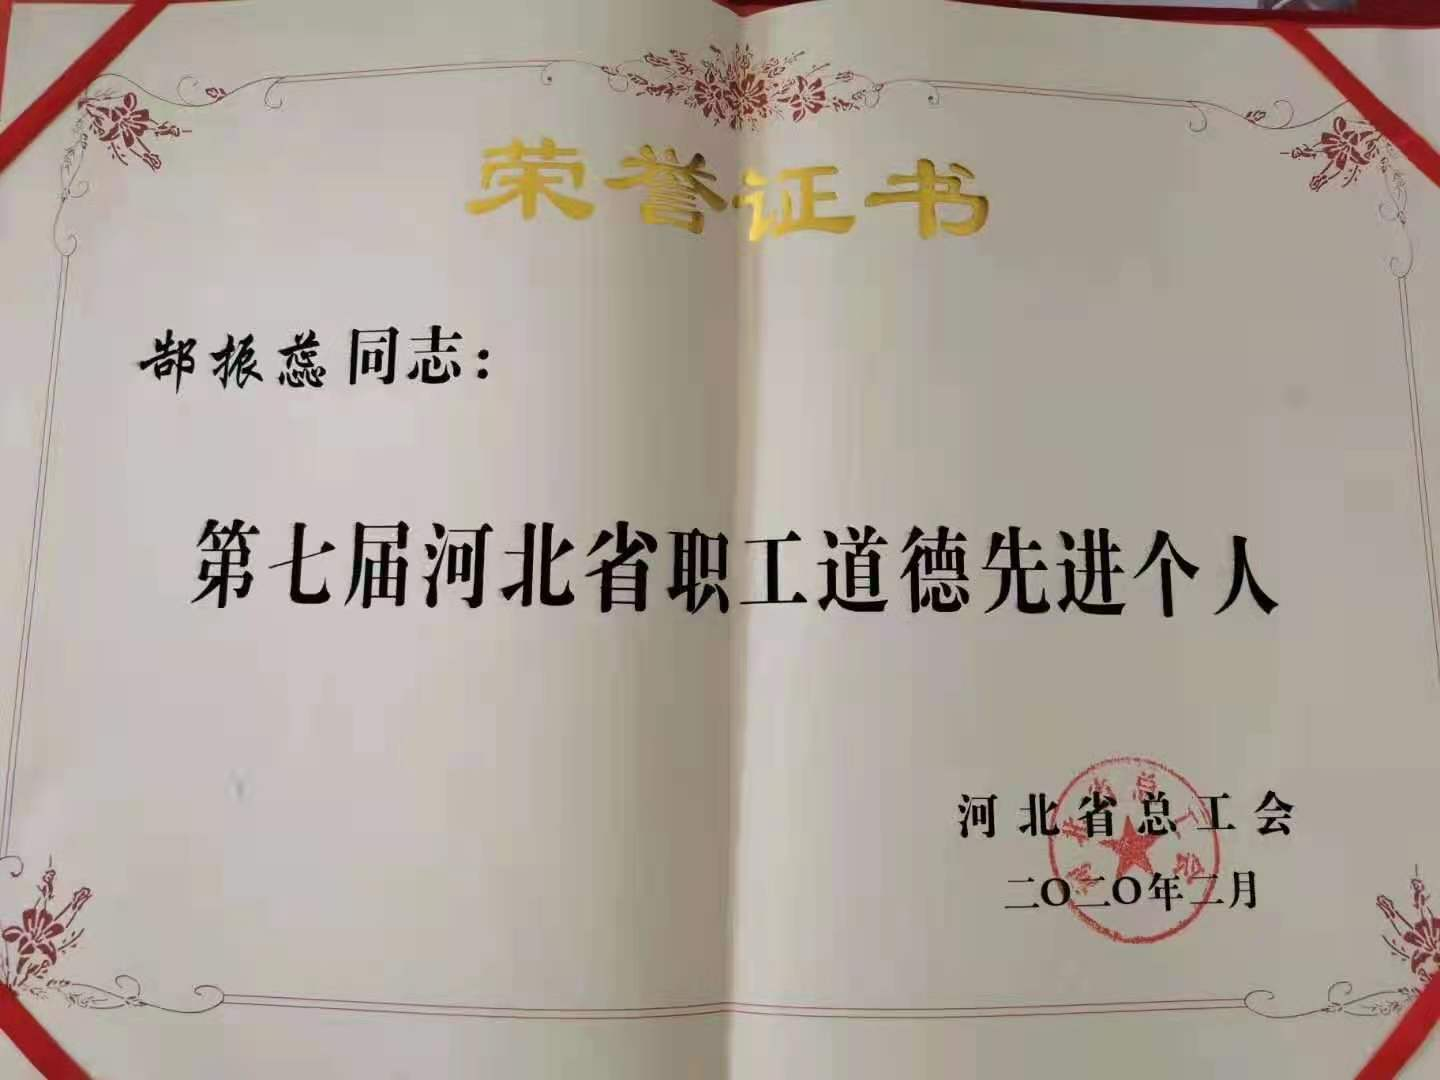 荣誉证书
郜振蕊同志：
第七届河北省职工道德先进个人
河北省总工会
二〇二〇年二月
河北省总工会